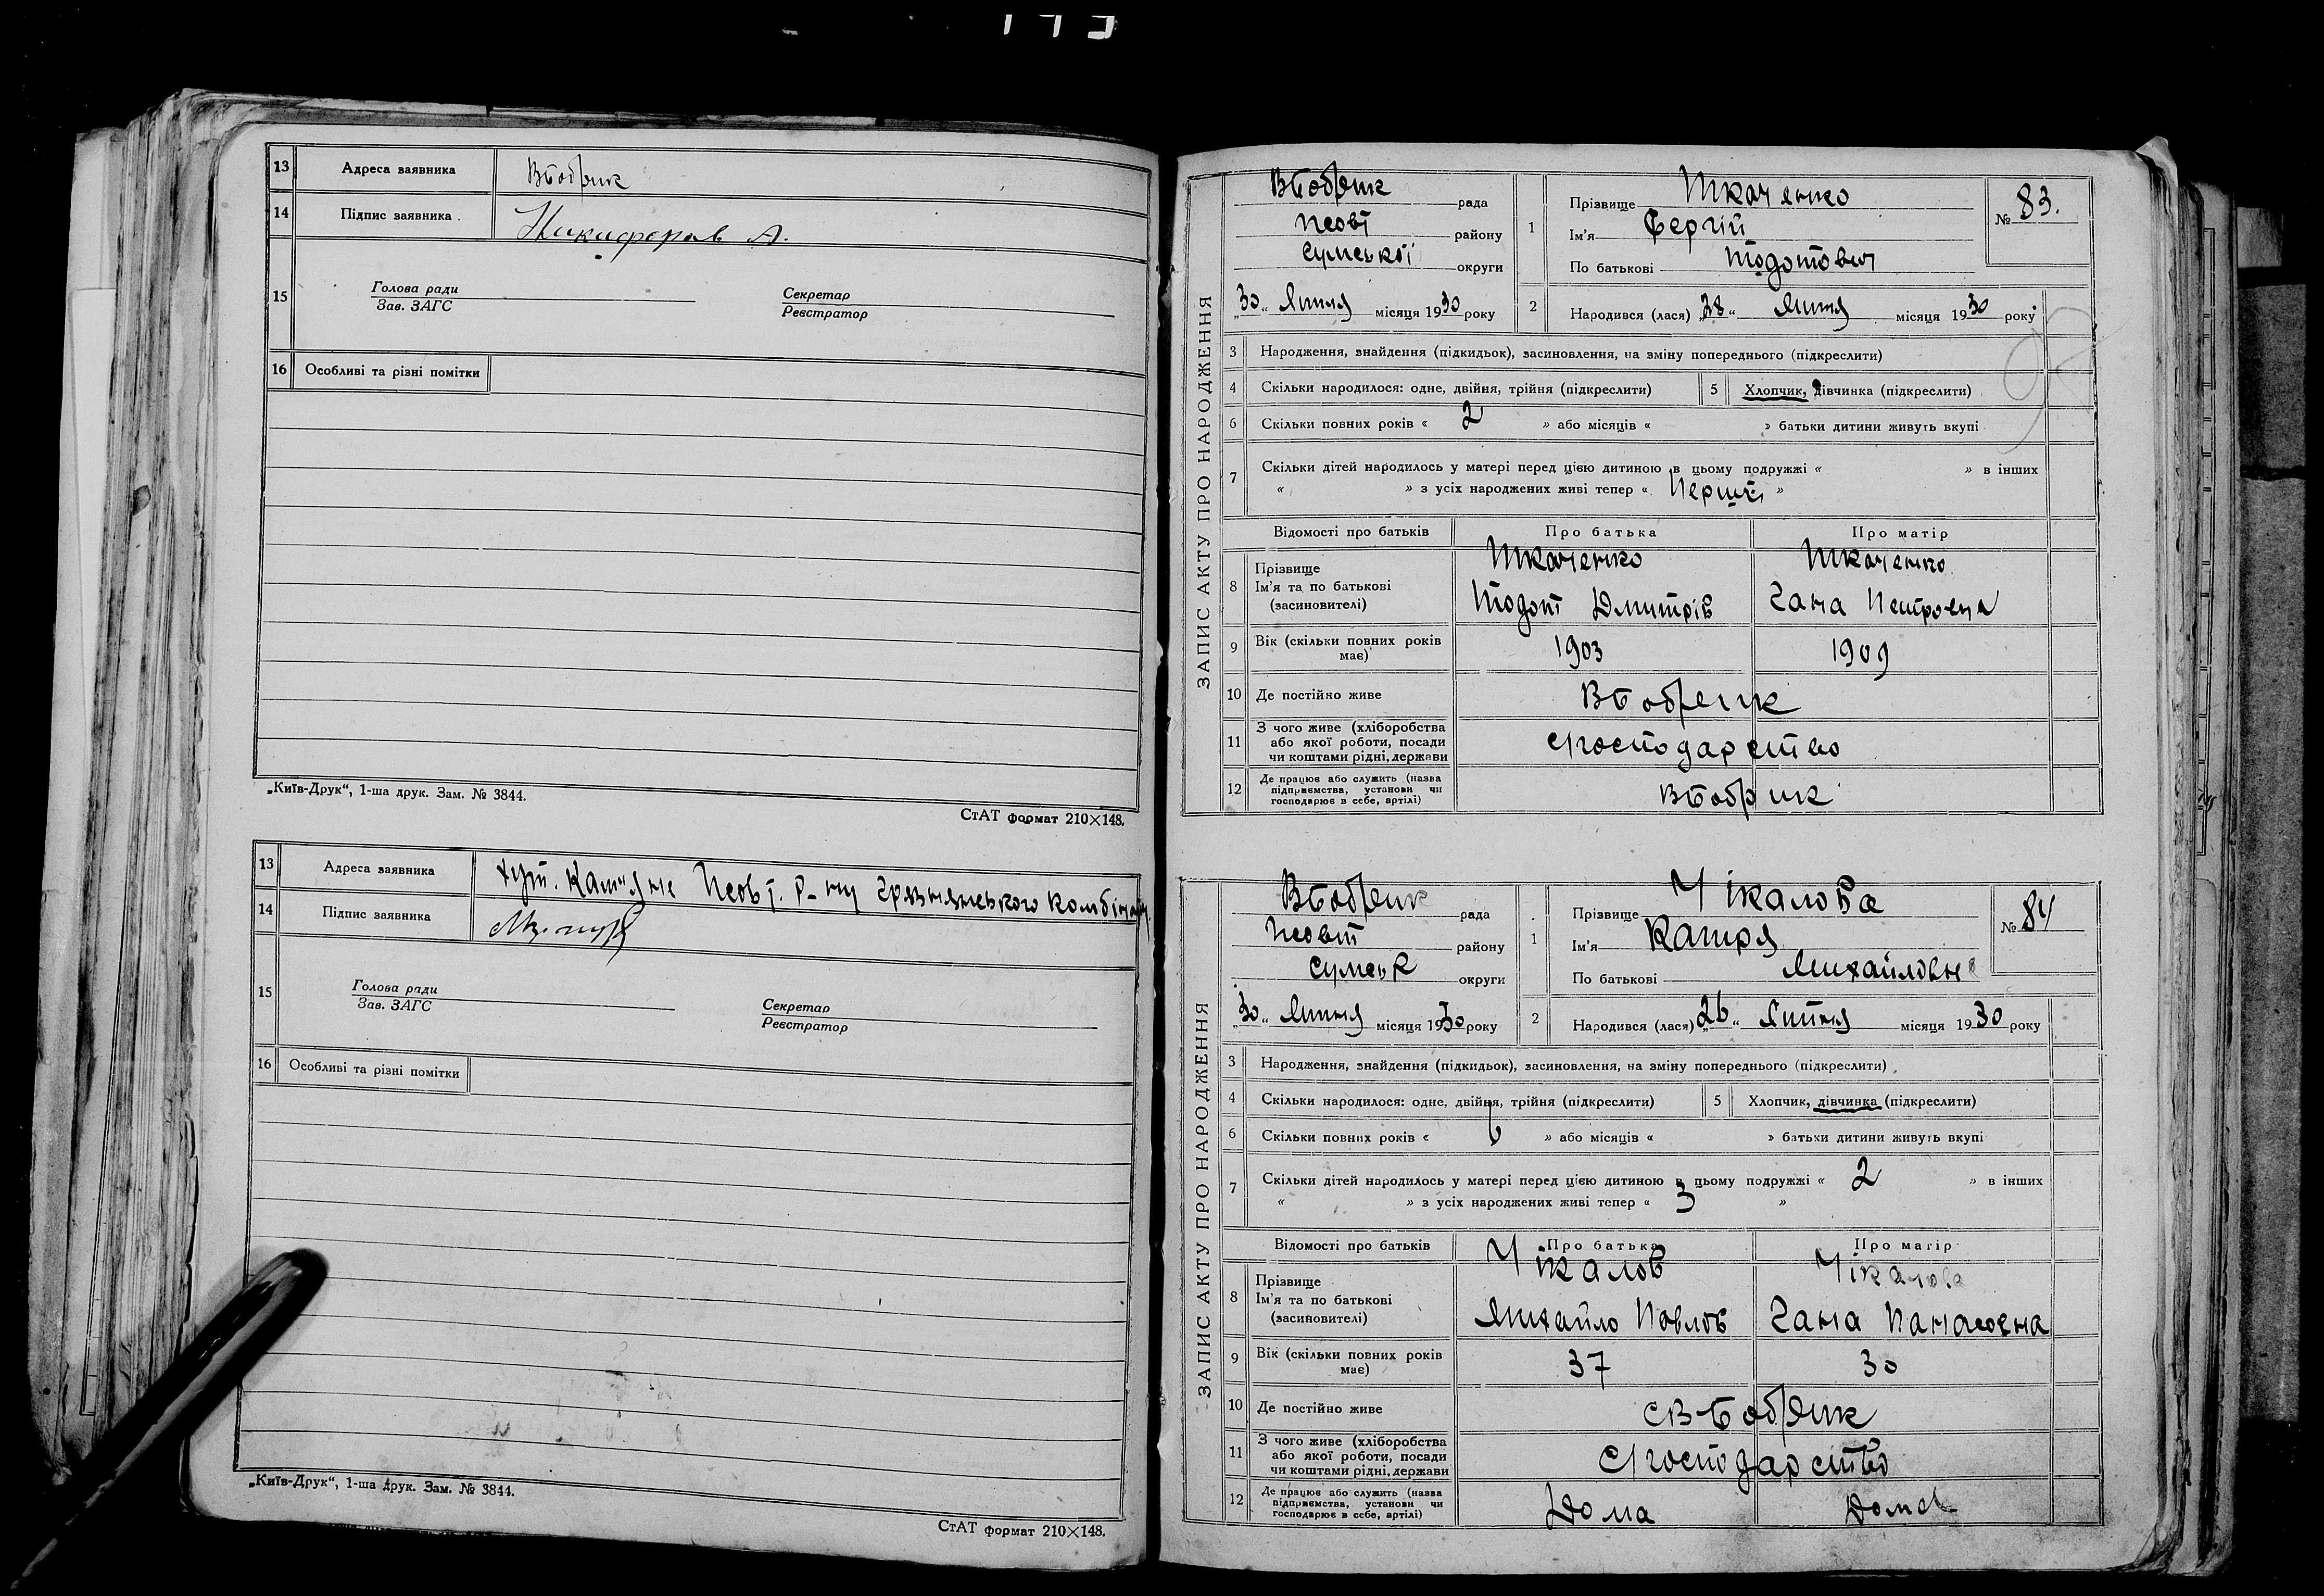 13 Адреса заявника ВБобрик
14 Підпис заявника Никифоров А.
15 Голова ради
Зав. ЗАГС
Секретар
Реєстратор
16 Особливі та різні помітки
„Київ-Друк“, 1-ша друк. Зам. № 3844.
СтАТ формат 210×148.
13 Адреса заявника хут. Камʼяне Псовт. р-ну
14 Підпис заявника
15 Голова ради
Зав. ЗАГС
Секретар
Реєстратор
16 Особливі та різні помітки
„Київ-Друк“, 1-ша друк. Зам. № 3844.
СтАТ формат 210×148.
ЗАПИС АКТУ ПРО НАРОДЖЕННЯ
ВБобрик рада
Псовт району
Сумської округи
„30“ Липня місяця 1930 року
1 Прізвище Ткаченко
Ім'я Сергій
По батькові Тодотович
№ 83.
2 Народився (лася) „28“ Липня місяця 1930 року
3 Народження, знайдення (підкидьок), засиновлення, на зміну попереднього (підкреслити)
4 Скільки народилося: одне, двійня, трійня (підкреслити) 5 Хлопчик, дівчинка (підкреслити)
6 Скільки повних років « 2 » або місяців « » батьки дитини живуть вкупі
7 Скільки дітей народилось у матері перед цією дитиною в цьому подружжі « » в інших
« » з усіх народжених живі тепер « »
Відомості про батьків Про батька Про матір
8 Прізвище Ткаченко Ткаченко
Ім'я та по батькові
(засиновителі) Тодот Дмитрів Гана Петровна
9 Вік (скільки повних років має) 1903 1909
10 Де постійно живе ВБобрик
11 З чого живе (хліборобства або якої роботи, посади чи коштами рідні, держави Сгосподарство
12 Де працює або служить (назва підприємства, установи чи господарює в себе, артілі) ВБобрик
ЗАПИС АКТУ ПРО НАРОДЖЕННЯ
ВБобрик рада
Псовт району
Сумськ округи
„30“ Липня місяця 1930 року
1 Прізвище Чікалова
Ім'я Катря
По батькові Михайловна
№ 84
2 Народився (лася) „26“ Липня місяця 1930 року
3 Народження, знайдення (підкидьок), засиновлення, на зміну попереднього (підкреслити)
4 Скільки народилося: одне, двійня, трійня (підкреслити) 5 Хлопчик, дівчинка (підкреслити)
6 Скільки повних років « 6 » або місяців « » батьки дитини живуть вкупі
7 Скільки дітей народилось у матері перед цією дитиною в цьому подружжі « 2 » в інших
« » з усіх народжених живі тепер « 3 »
Відомості про батьків Про батька Про матір
8 Прізвище Чікалов Чікалова
Ім'я та по батькові
(засиновителі) Михайло Павлов Гана Панасовна
9 Вік (скільки повних років має) 37 30
10 Де постійно живе СВБобрик
11 З чого живе (хліборобства або якої роботи, посади чи коштами рідні, держави Сгосподарство
12 Де працює або служить (назва підприємства, установи чи господарює в себе, артілі) Дома Дома